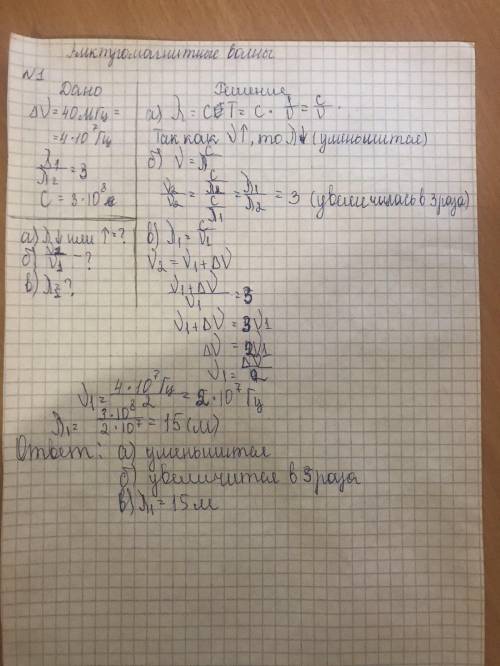 Электромагнитные волны
N1
Дано
ΔV = 40 МГц =
= 4·10⁷ Гц
λ1/λ2 = 3
C = 3·10⁸
а) λ↓ или ↑ = ?
б) V2/V1 - ?
в) λ1 = ?
Решение
а) λ = CT = C · 1/V = C/V.
Так как V↑, то λ↓ (уменьшится)
б) V = C/λ
V2/V2 = (C/λ2)/(C/λ1) = λ1/λ2 = 3 (увеличилась в 3 раза)
в) λ1 = C/V1
V2 = V1 + ΔV
(V1 + ΔV)/V1 = 3
V1 + ΔV = 3V1
ΔV = 2V1
V1 = ΔV/2
V1 = 4·10⁷ Гц/2 = 2·10⁷ Гц
λ1 = 3·10⁸/2·10⁷ = 15 (м)
Ответ: а) уменьшится
б) увеличится в 3 раза
в) λ1 = 15 м